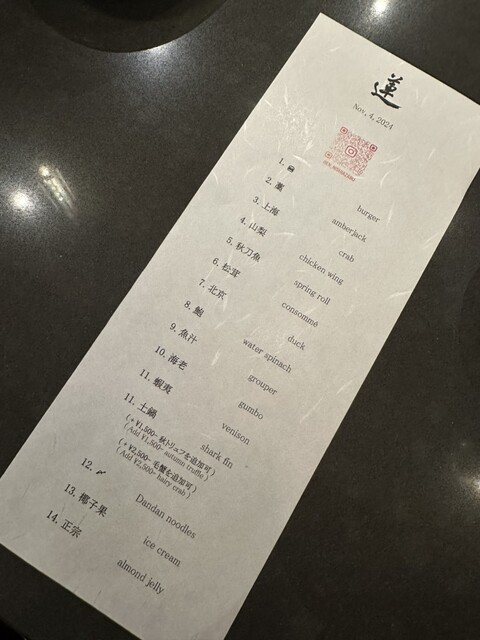 蓮
Nov, 4, 2024
1.
burger
2. 薫
amberjack
3. 上海
crab
4. 山梨
chicken wing
5. 秋刀魚
spring roll
6. 松茸
consommé
7. 北京
duck
8. 鮑
water spinach
9. 魚汁
grouper
10. 海老
gumbo
11. 蝦夷
venison
11. 土鍋
shark fin
(+¥1,500- 秋トリュフを追加可)
(Add ¥1,500- autumn truffle)
(+¥2,500- 毛蟹を追加可)
(Add ¥2,500- hairy crab)
12.
Dandan noodles
13. 椰子果
ice cream
14. 正宗
almond jelly